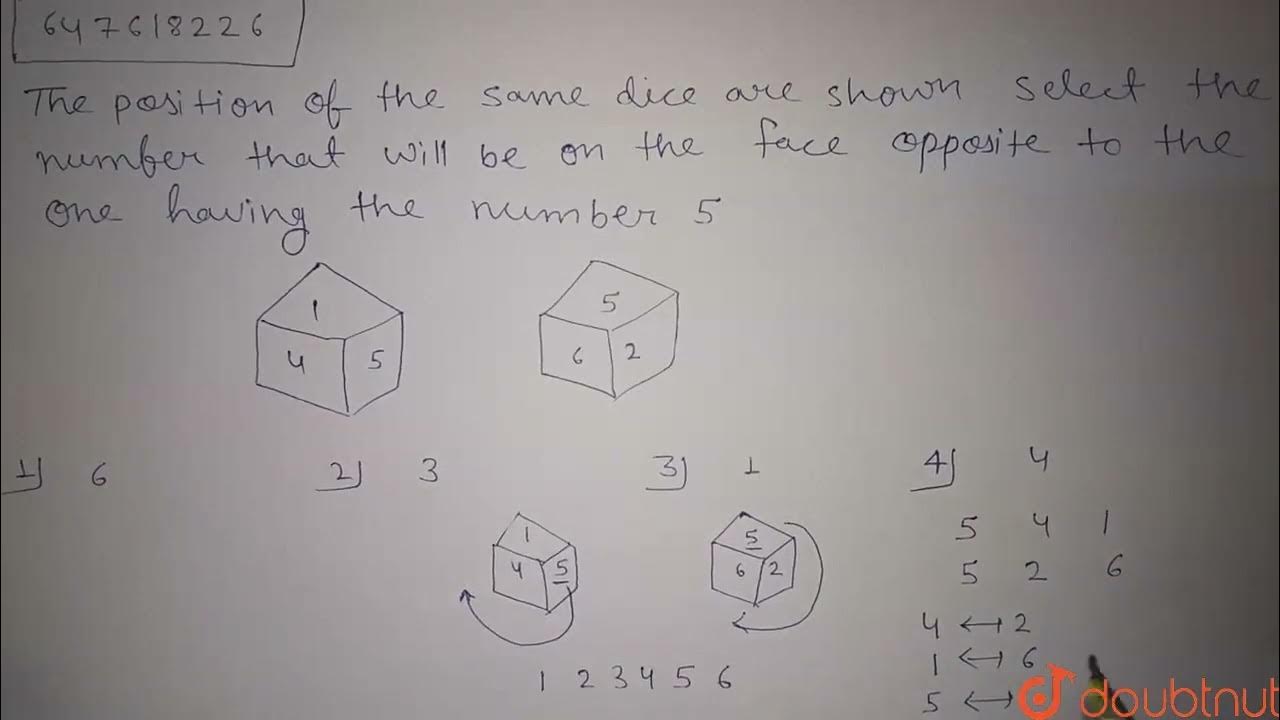 647618226
The position of the same dice are shown select the
number that will be on the face opposite to the
one having the number 5
1 5
4 5 6 2
1) 6 2) 3 3) 1 4) 4
1 5 5 4 1
4 5 6 2 5 2 6
4 ↔ 2
1 ↔ 6
1 2 3 4 5 6
5 ↔
doubtnut